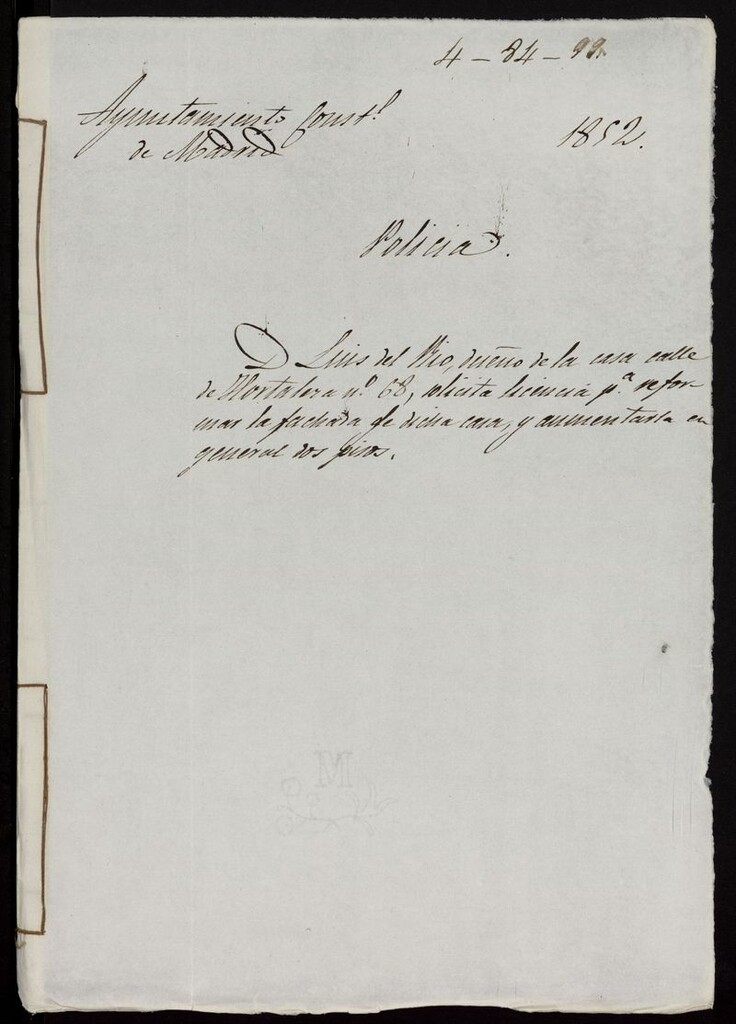 4 - 84 - 99.
Ayuntamiento Const.l
de Madrid
1852.
Policia.
D Luis del Rio, dueño de la casa calle
de Hortaleza n.º 68, solicita licencia p.a refor-
mar la fachada de dicha casa, y aumentarla en
general dos pisos.
M